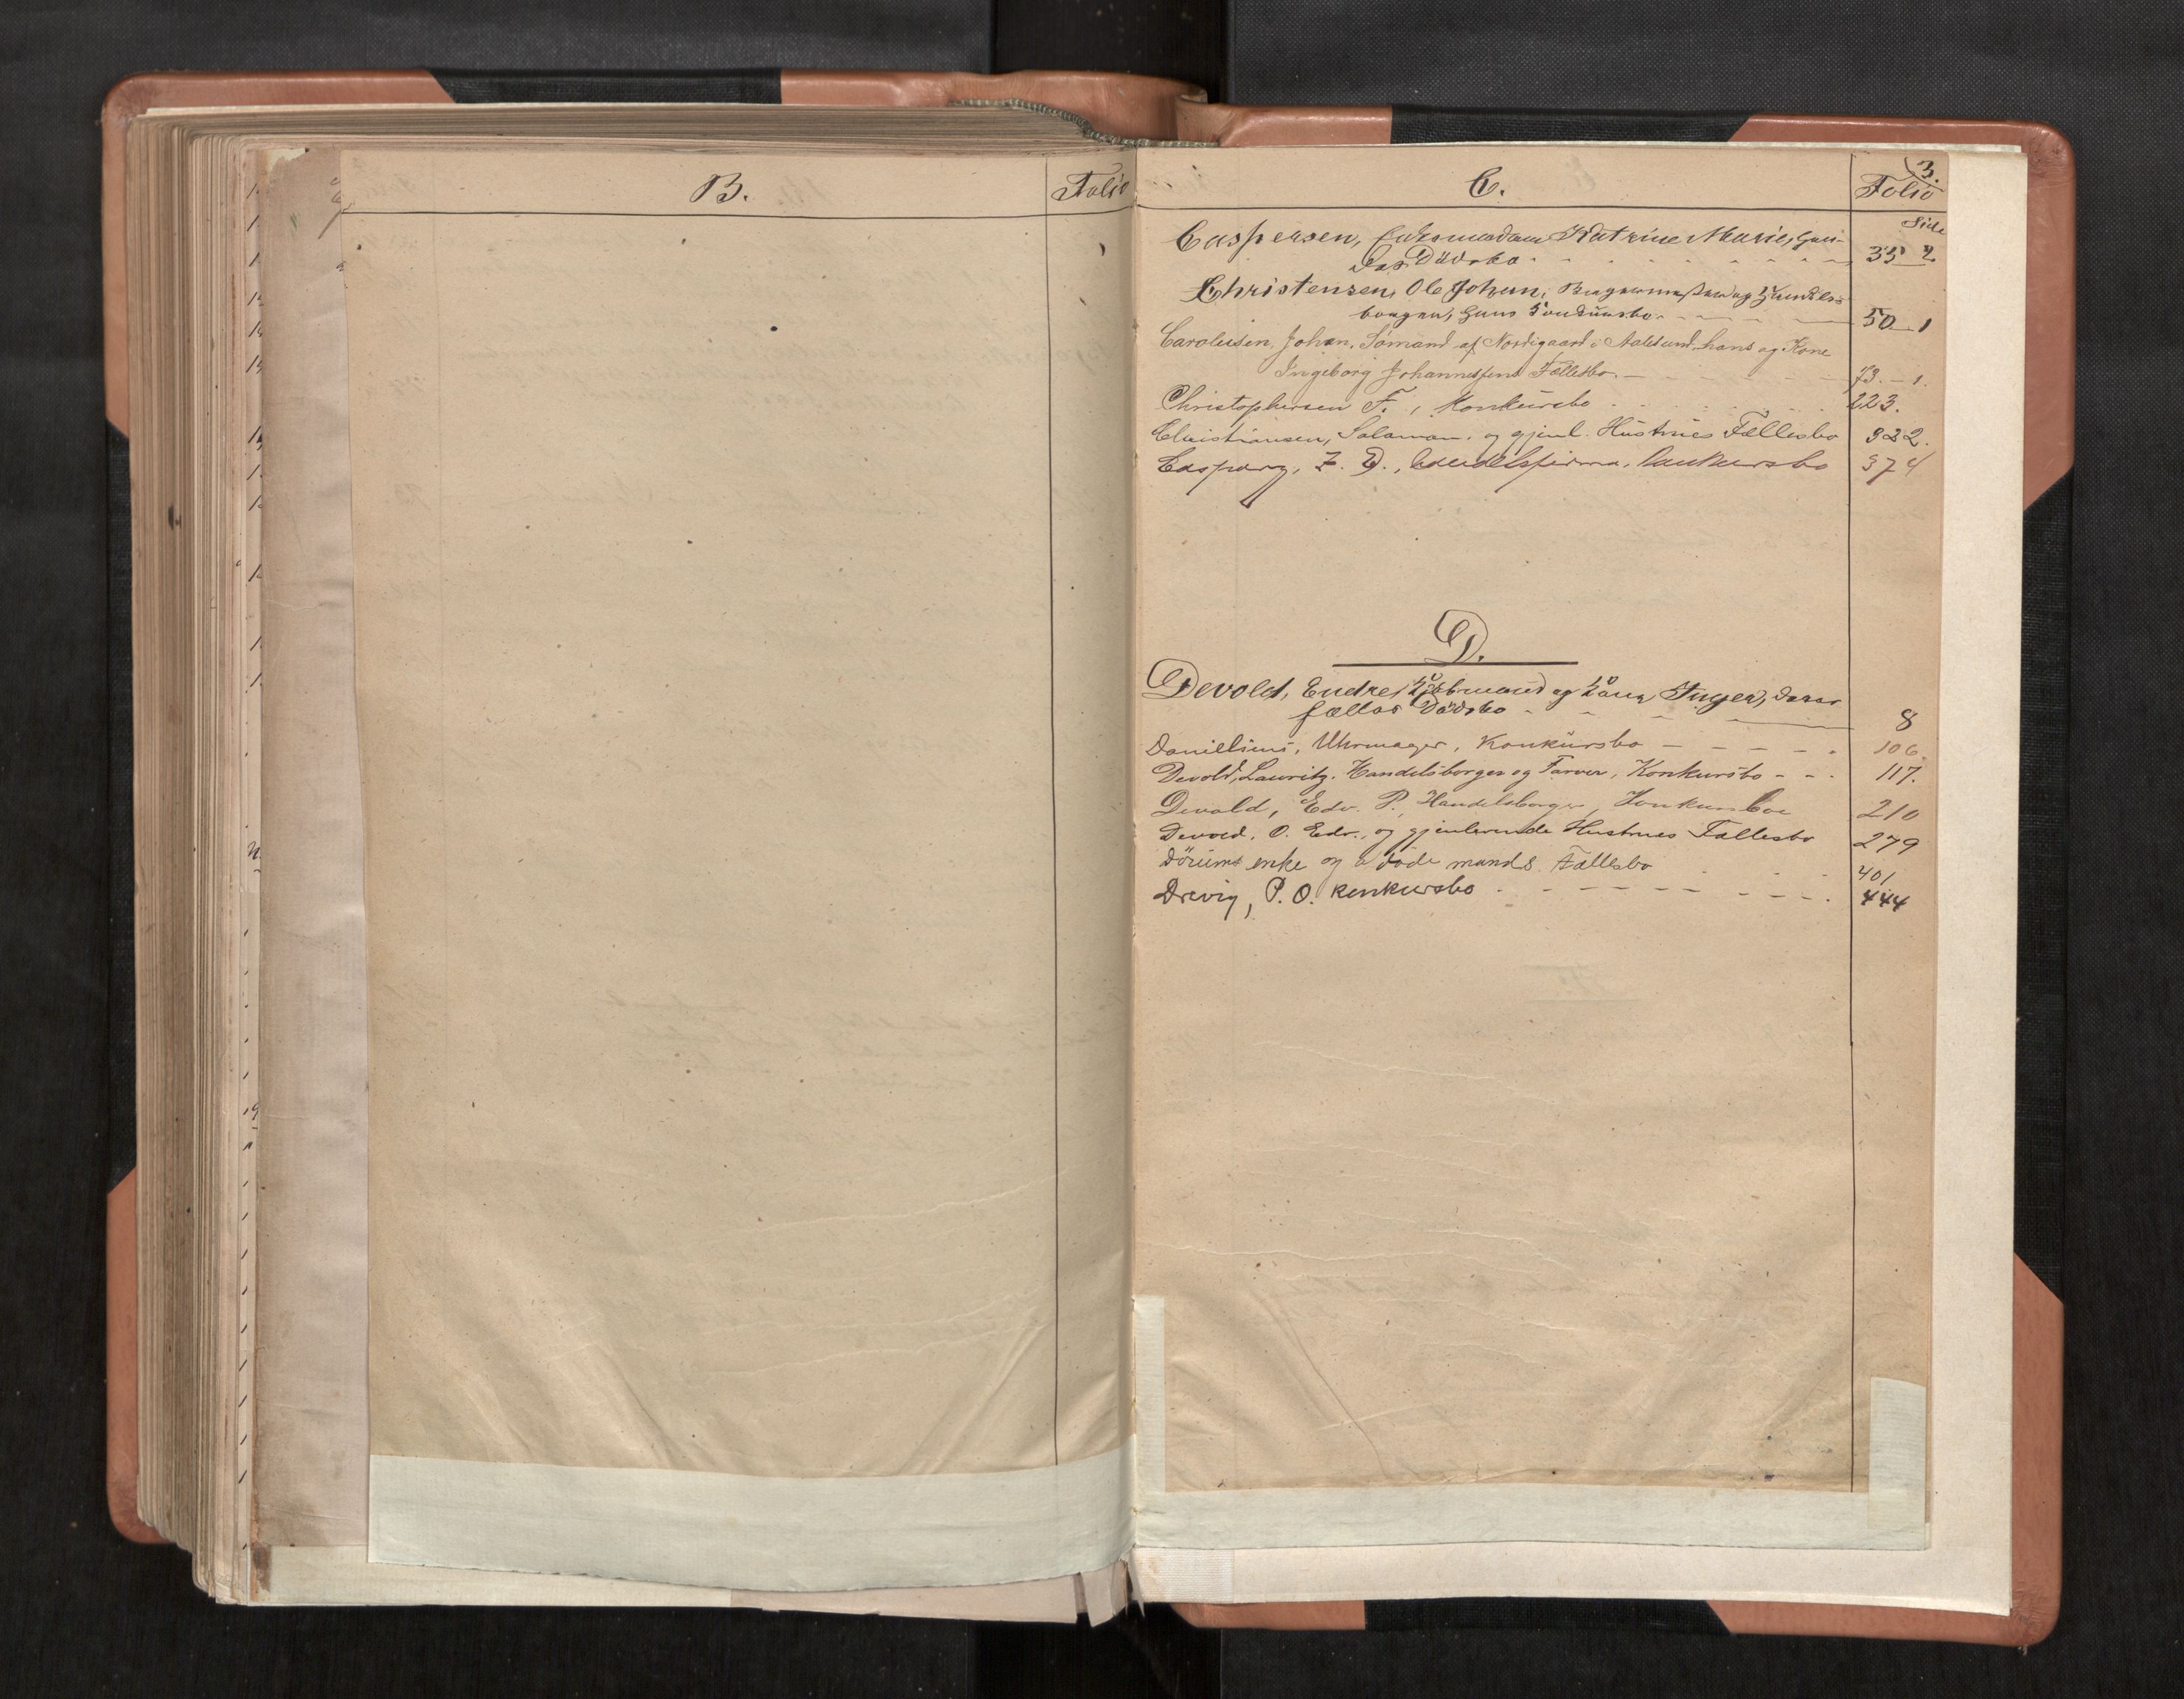 B.
Folio
C.
3.
Folio
Side
Caspersen, Enkemadam Katrine Marie, hen-
des Dödsbo 35 2
Christensen, Ole Johan, Bagermester og Handels-
borger, hans Konkursbo 50 1
Carolusen, Johan, Sømand af Nordigaard i Aalesund hans og Kone
Ingeborg Johannessens Fællesbo. 73. - 1.
Christophersen F., Konkursbo 223.
Christiansen, Salamon, og gjenl. Hustrues Fællesbo 322.
Caspary, Z. D., Handelsfirma, Konkursbo 374
D.
Devold, Endre, Kjöbmand og Kone Inger, deres
fælles Dödsbo 8
Danielsens, Uhrmager, Konkursbo 106.
Devold, Lauritz. Handelsborger og Farver, Konkursbo 117.
Devold, Edv. P., Handelsborger, Konkursboe 210
Devold, O. Edv., og gjenlevende Hustrues Fællesbo 279
Dörums enke og døde mands Fællesbo 401
Drevig, P. O. konkursbo 444